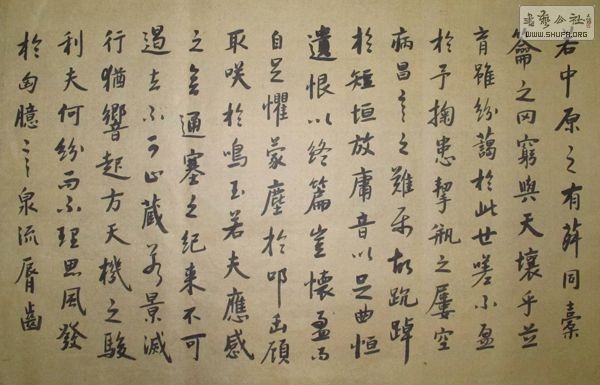 书艺公社
WWW.SHUFA.ORG
若中原之有菽同橐
籥之罔窮與天壤乎並
育雖紛藹於此世嗟不盈
於予掬患挈瓶之屢空
病昌言之難属故踸踔
於短垣放庸音以足曲恒
遺恨以終篇豈懷盈而
自足懼蒙塵於叩缶顧
取咲於鳴玉若夫應感
之會通塞之紀来不可
遏去不可止藏若景滅
行猶響起方天機之駿
利夫何紛而不理思風發
於胸臆言泉流脣齒